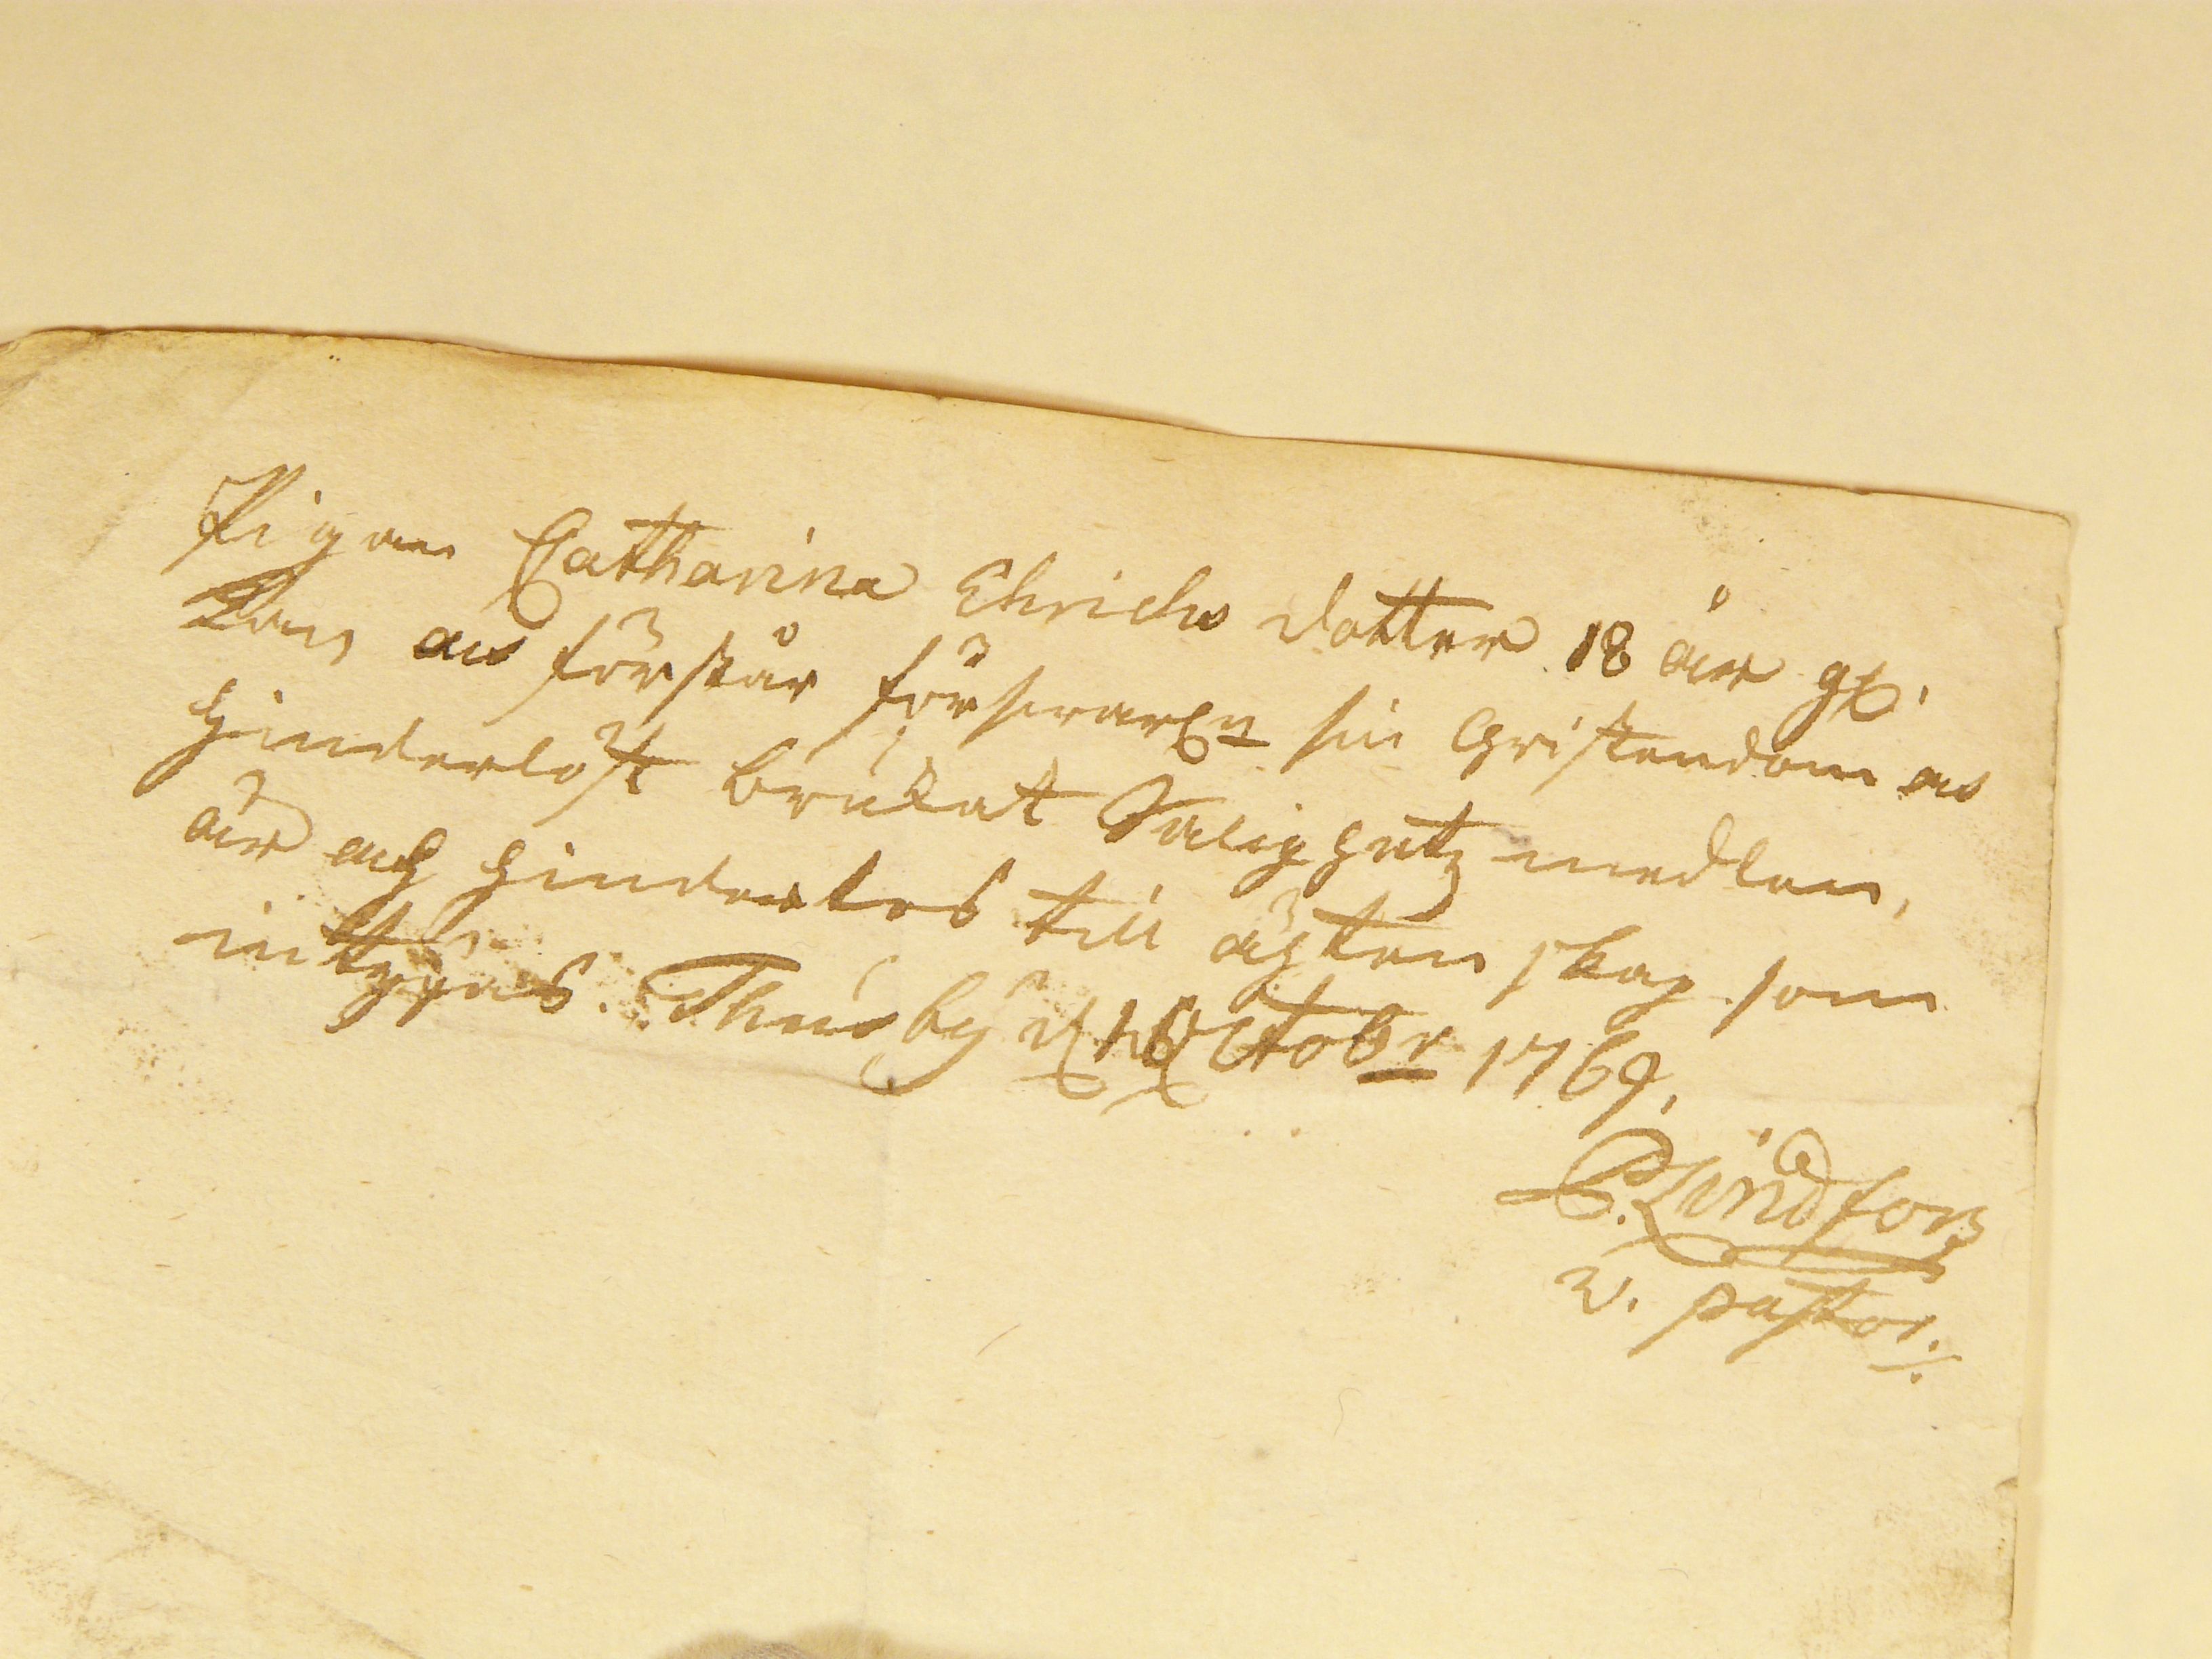 Pigan Catharina Ehrichs dotter 18 år gl.
kan och förstår försvarln sin Cristendom och
hinderlöst brukat Salighetz medlen,
är och hinderlös till ächtenskap som
intygas. Thusby d 16 Octobr 1769.
C. Lindforß
v. pastor.